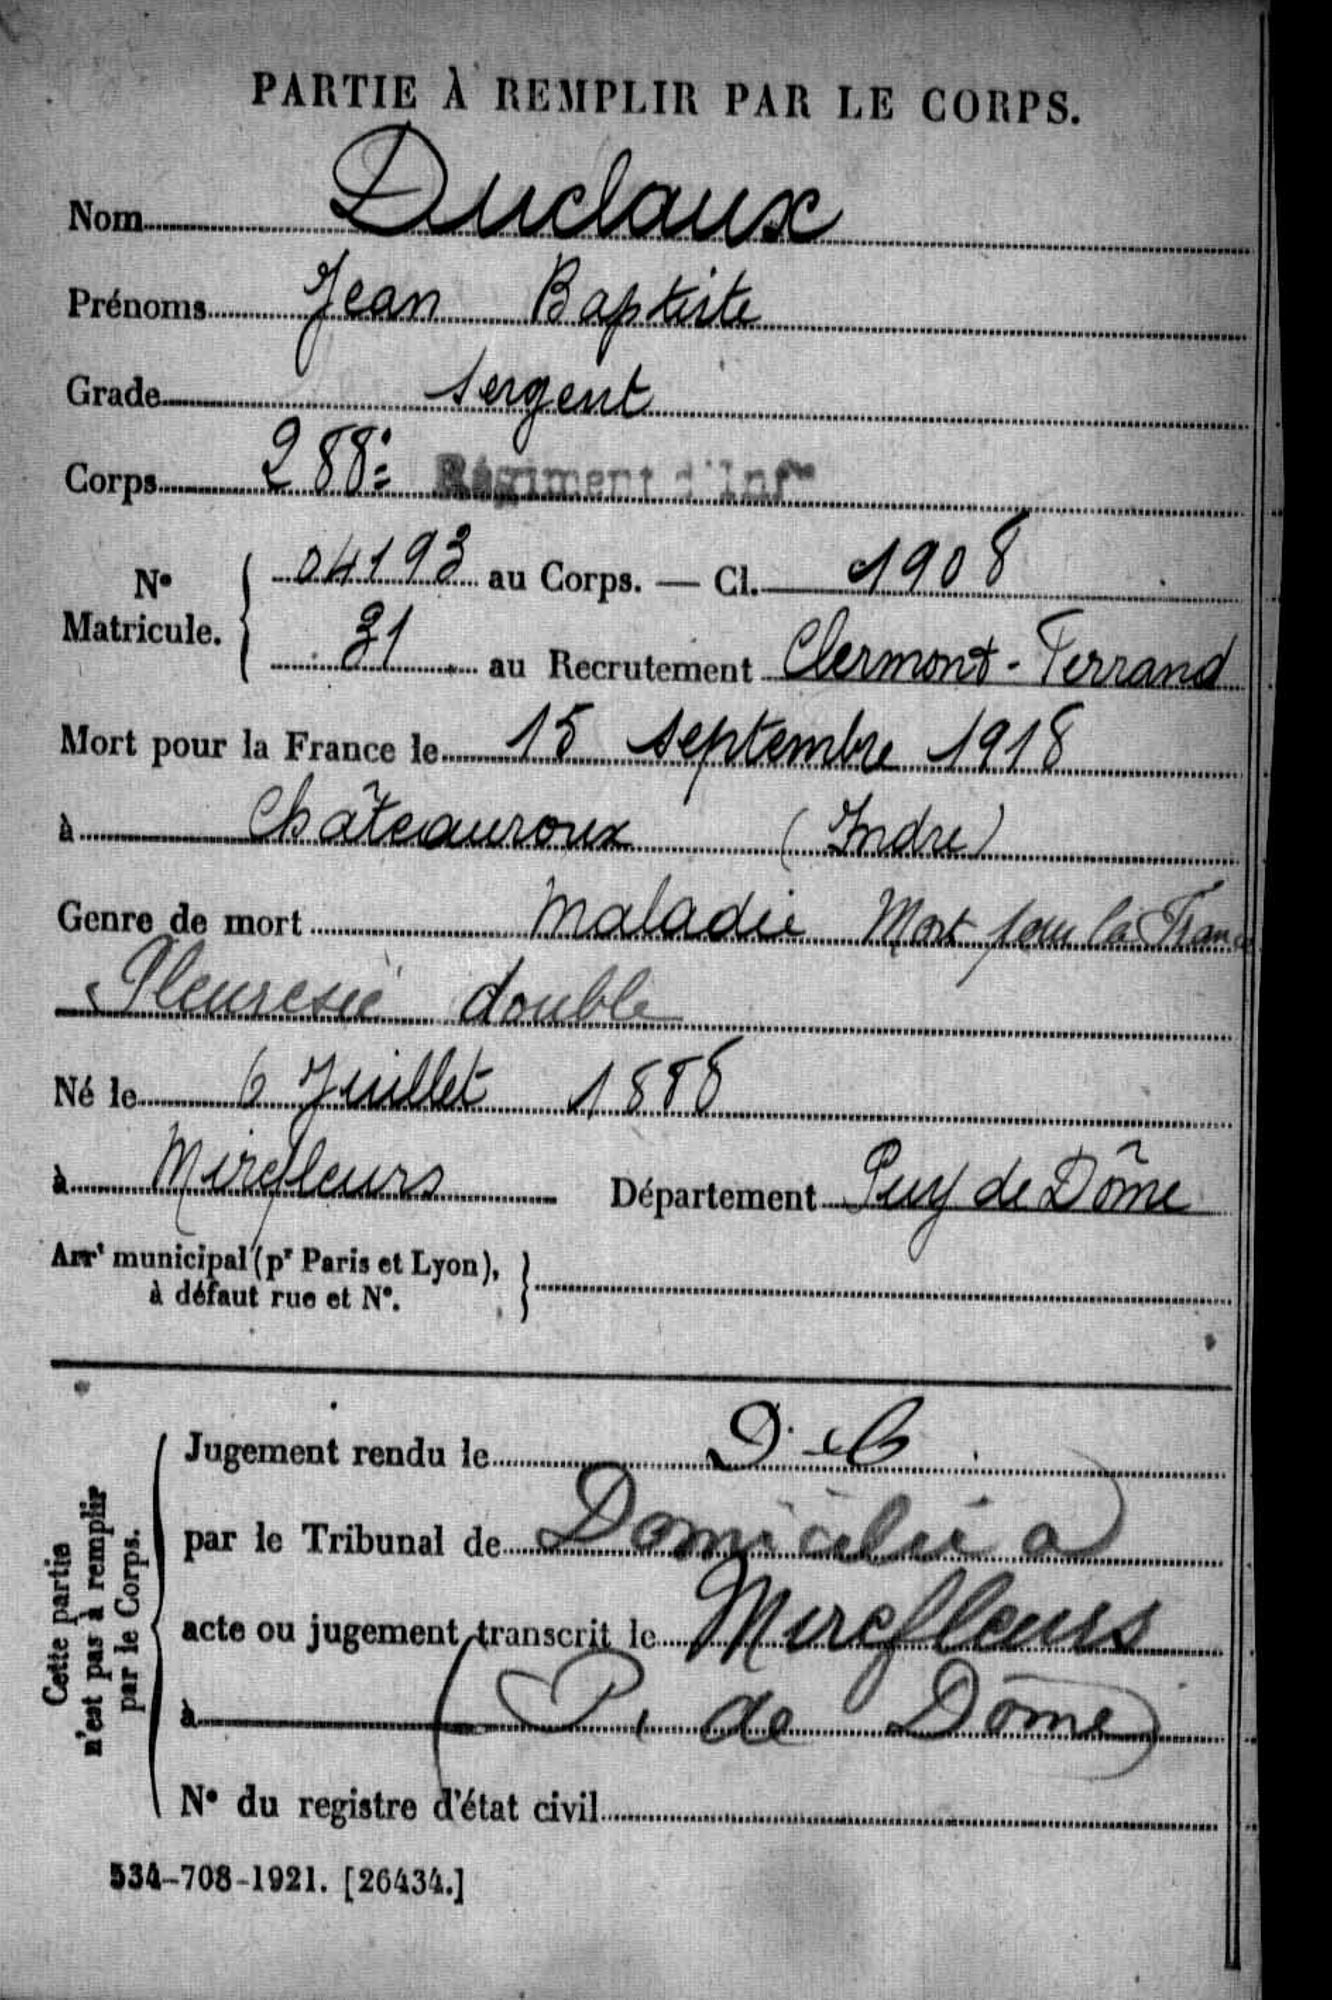 PARTIE À REMPLIR PAR LE CORPS.
Nom Duclaux
Prénoms Jean Baptiste
Grade Sergent
Corps 288e Régiment d'Infie
No Matricule. 04193 au Corps. — Cl. 1908
31 au Recrutement Clermont-Ferrand
Mort pour la France le 15 septembre 1918
à Châteauroux (Indre)
Genre de mort Maladie Mort pour la France
Pleuresie double
Né le 6 Juillet 1888
à Mirefleurs Département Puy de Dôme
Arrt municipal (pr Paris et Lyon),
à défaut rue et No.
Cette partie
n'est pas à remplir
par le Corps.
Jugement rendu le
par le Tribunal de Domicilié a
acte ou jugement transcrit le Mirefleurs
à (P. de Dôme)
No du registre d'état civil
534-708-1921. [26434.]